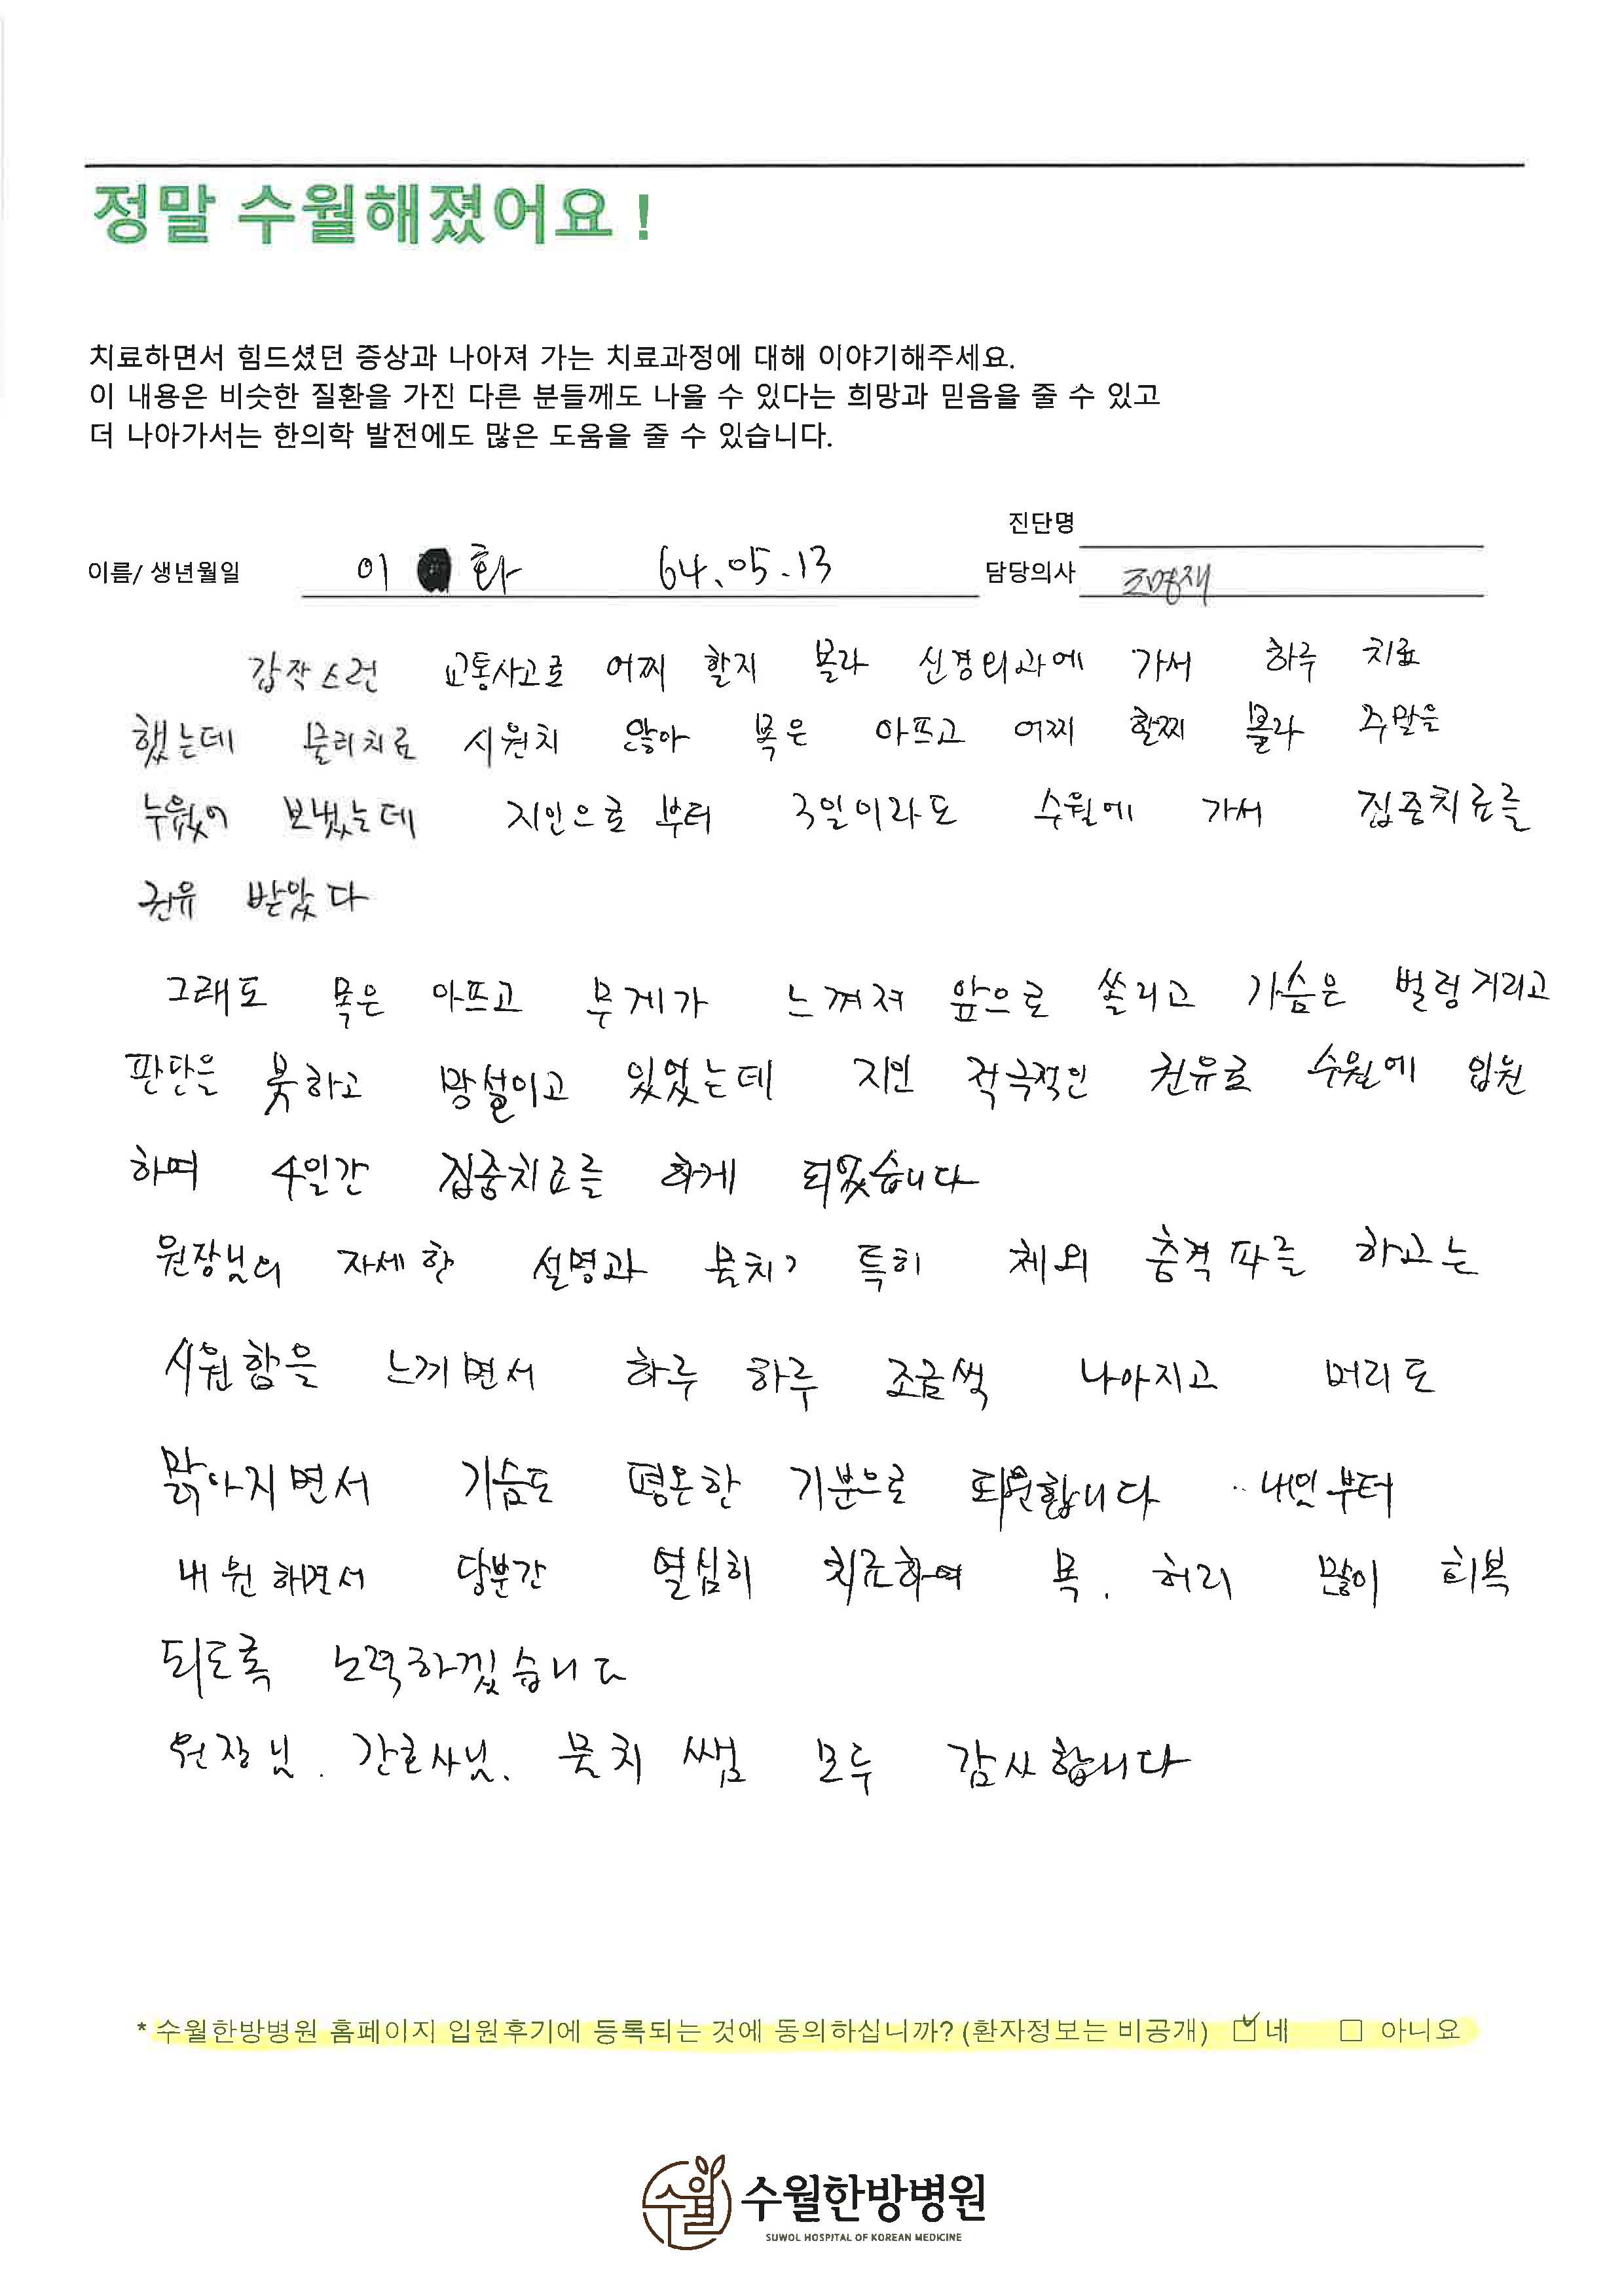 정말 수월해졌어요!
치료하면서 힘드셨던 증상과 나아져 가는 치료과정에 대해 이야기해주세요.
이 내용은 비슷한 질환을 가진 다른 분들께도 나을 수 있다는 희망과 믿음을 줄 수 있고
더 나아가서는 한의학 발전에도 많은 도움을 줄 수 있습니다.
진단명
이름/ 생년월일 이 화 64.05.13 담당의사 조명재
갑작스런 교통사고로 어찌 할지 몰라 신경외과에 가서 하루 치료
했는데 물리치료 시원치 않아 목은 아프고 어찌 할찌 몰라 주말을
누웠어 보냈는데 지인으로 부터 3일이라도 수월에 가서 집중치료를
권유 받았다
그래도 목은 아프고 무게가 느껴져 앞으로 쏠리고 가슴은 벌렁거리고
판단을 못하고 망설이고 있었는데 지인 적극적인 권유로 수월에 입원
하며 4일간 집중치료를 하게 되었습니다
원장님의 자세한 설명과 물치, 특히 체외 충격파를 하고는
시원함을 느끼면서 하루 하루 조금씩 나아지고 머리도
맑아지면서 가슴도 평온한 기분으로 퇴원합니다 내일부터
내원하면서 당분간 열심히 치료하여 목. 허리 많이 회복
되도록 노력하겠습니다
원장님. 간호사님. 물치 쌤 모두 감사합니다
* 수월한방병원 홈페이지 입원후기에 등록되는 것에 동의하십니까? (환자정보는 비공개) ☑ 네 □ 아니요
수월 수월한방병원
SUWOL HOSPITAL OF KOREAN MEDICINE